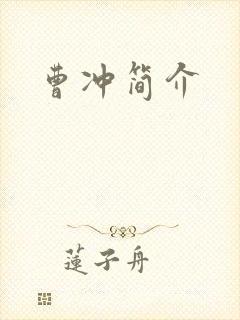 曹冲简介
莲子舟